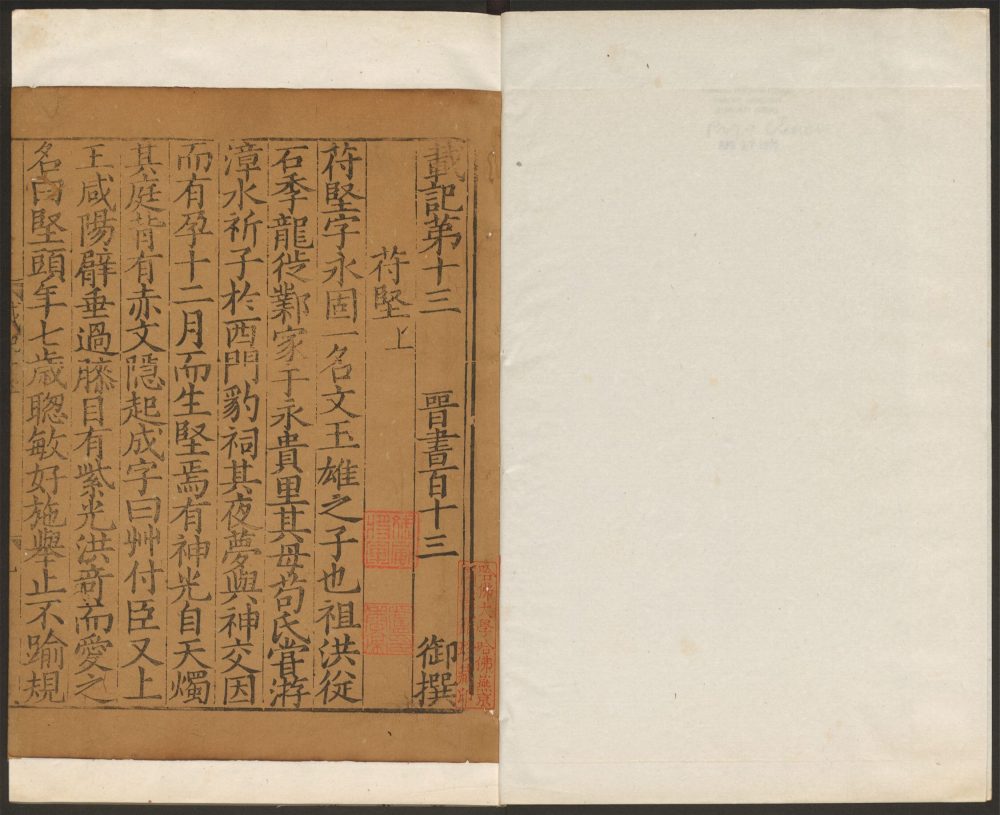 載記第十三 晉書百十三 御撰
苻堅上
苻堅字永固一名文玉雄之子也祖洪從
石季龍徙鄴家于永貴里其母苟氏甞游
漳水祈子於西門豹祠其夜夢與神交因
而有孕十二月而生堅焉有神光自天燭
其庭背有赤文隱起成字曰艸付臣又土
王咸陽臂垂過膝目有紫光洪竒而愛之
名曰堅頭年七歲聦敏好施舉止不踰規
哈佛大學哈佛燕京